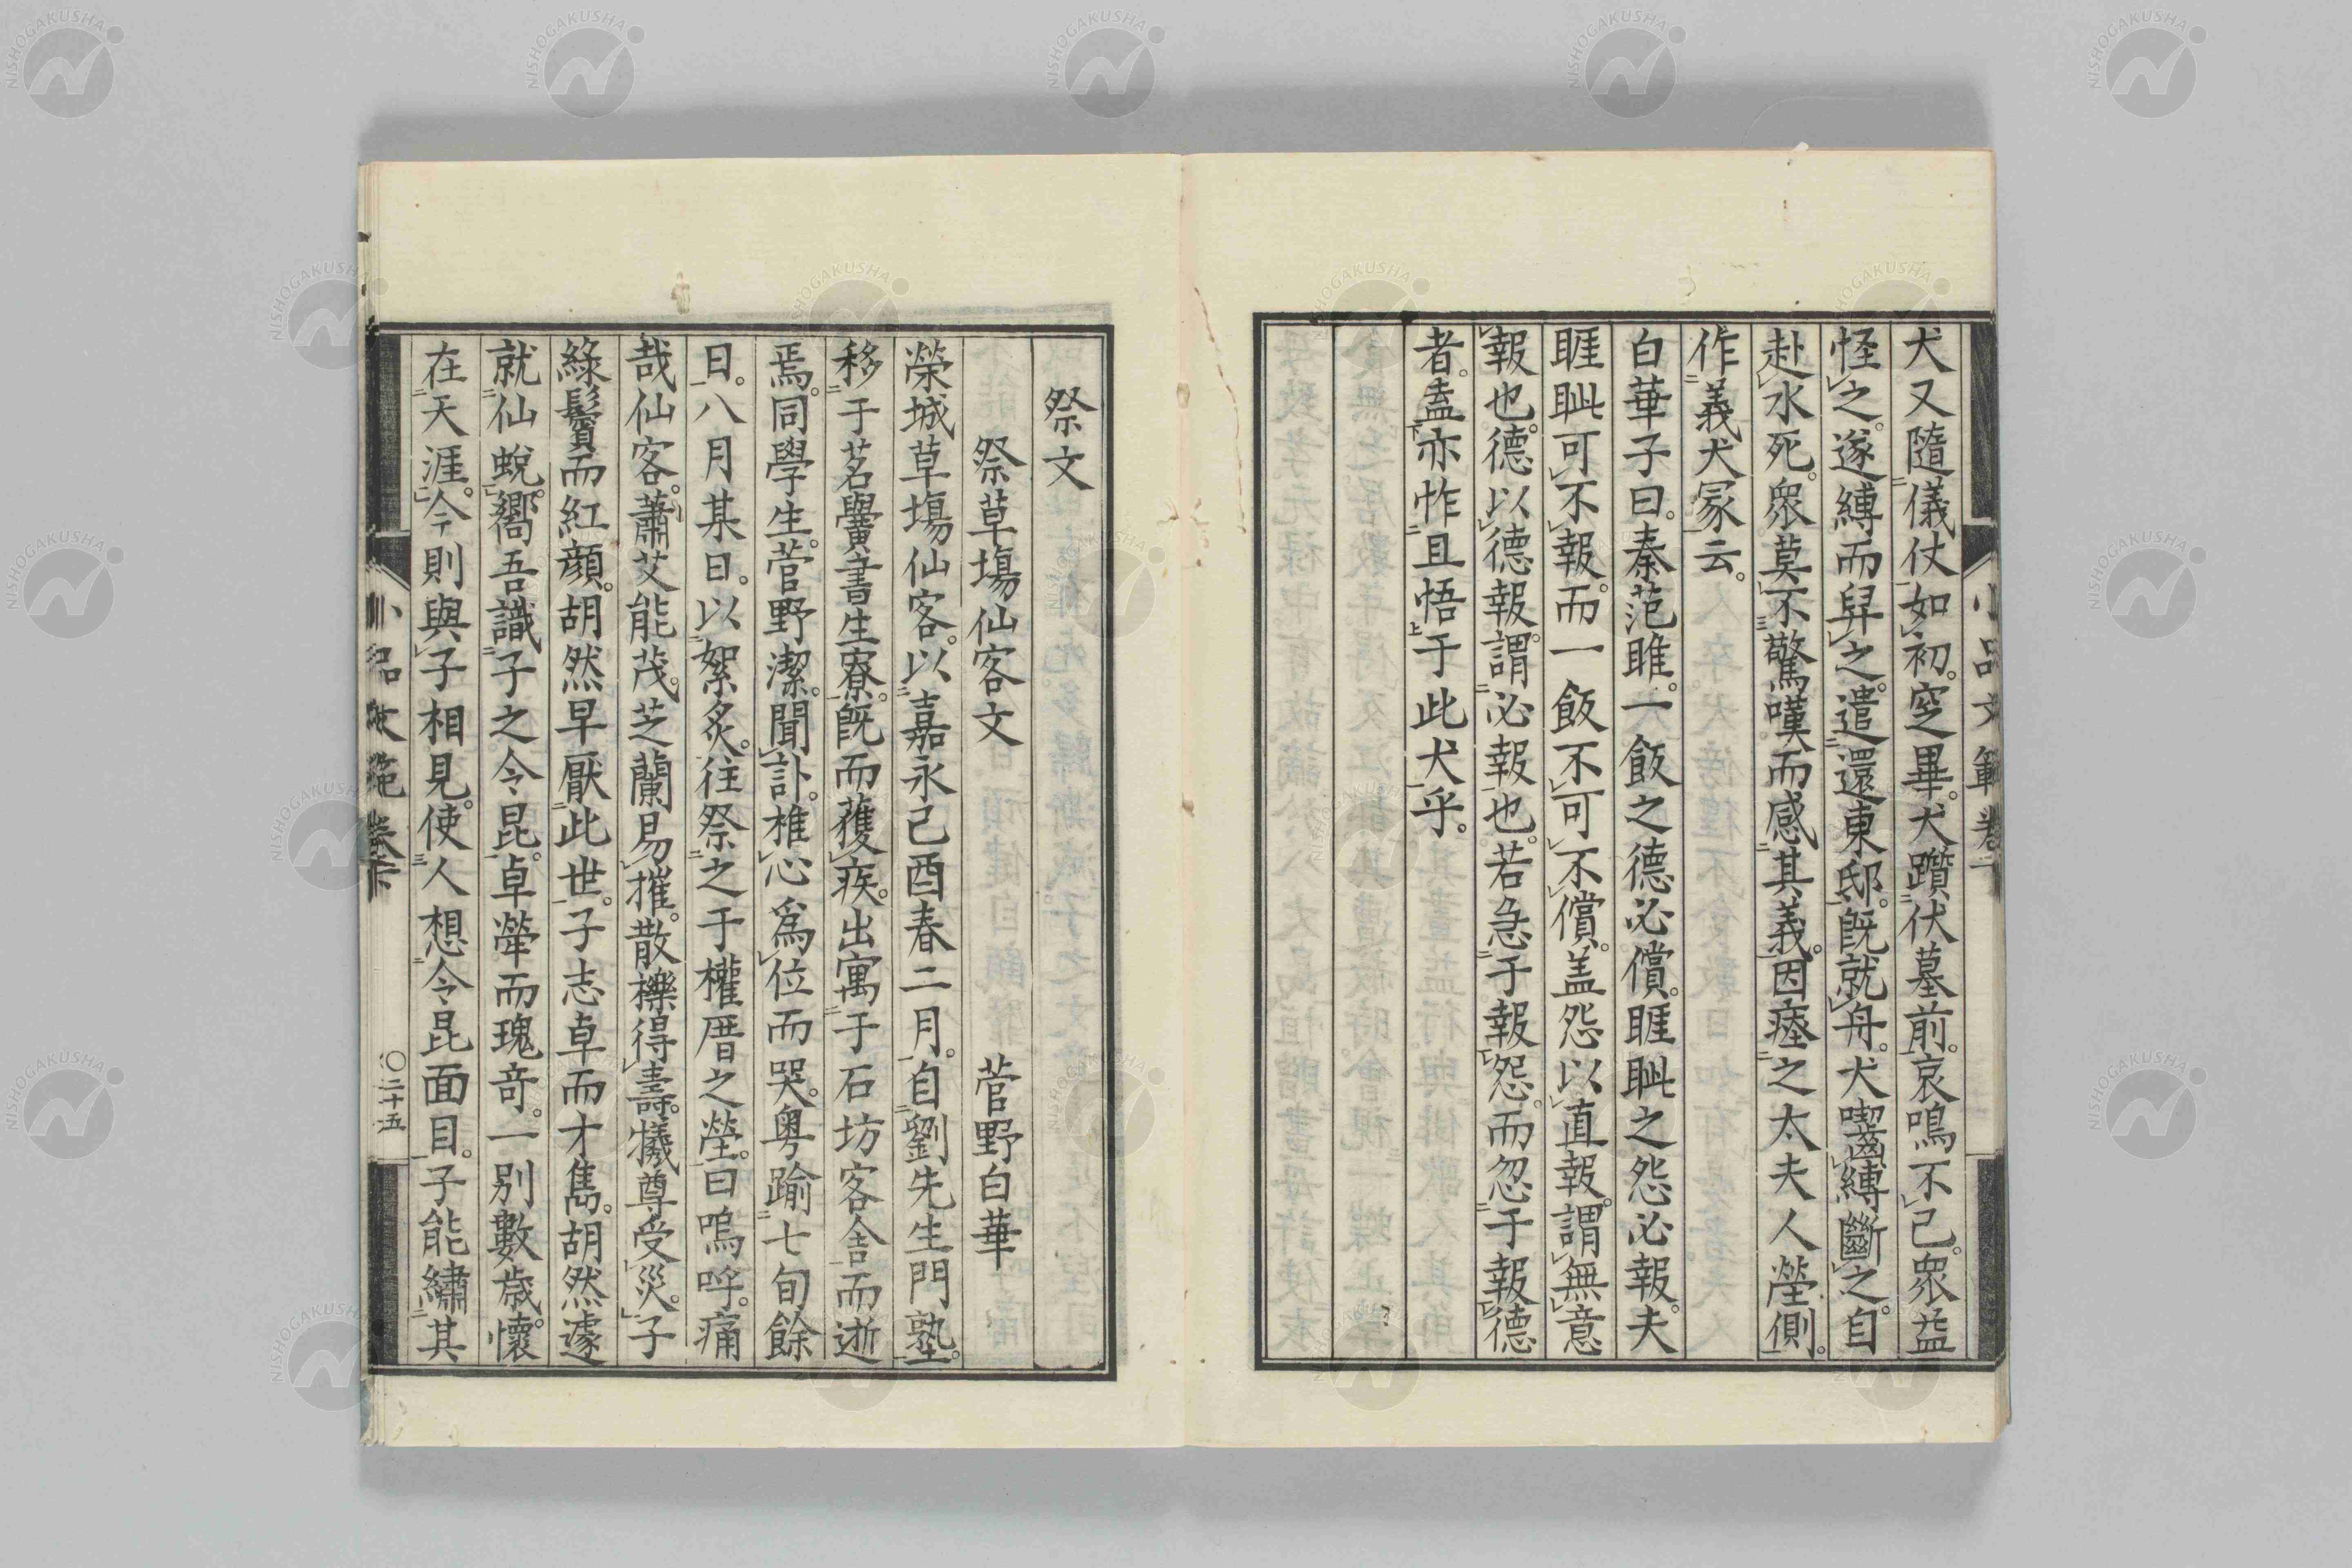 犬又隨儀仗如初。窆畢。犬躦伏墓前。哀鳴不已。衆益
怪之。遂縛而舁之。遣還東邸。既就舟。犬囓縛斷之。自
赴水死。衆莫不驚嘆而感其義。因瘞之太夫人塋側。
作義犬冢云。
白華子曰。秦范雎。一飯之德必償。睚眦之怨必報。夫
睚眦可不報。而一飯不可不償。盖怨以直報。謂無意
報也。德以德報。謂必報也。若急于報怨。而忽于報德
者。盍亦怍且悟于此犬乎。
祭文
祭草塲仙客文 菅野白華
榮城草塲仙客。以嘉永己酉春二月。自劉先生門塾。
移于茗黌書生寮。既而獲疾。出寓于石坊客舎而逝
焉。同學生。菅野潔。聞訃。椎心爲位而哭。粤踰七旬餘
日。八月某日。以絮炙。往祭之于權厝之塋。曰嗚呼。痛
哉仙客。蕭艾能茂。芝蘭易摧。散櫟得壽。犧尊受災。子
綠鬢而紅顔。胡然早厭此世。子志卓而才雋。胡然遽
就仙蛻。嚮吾識子之令昆。卓犖而瑰奇。一別數歲。懷
在天涯。今則與子相見。使人想令昆面目。子能繡其
小品文範卷下
〇二十五
NISHOGAKUSHA